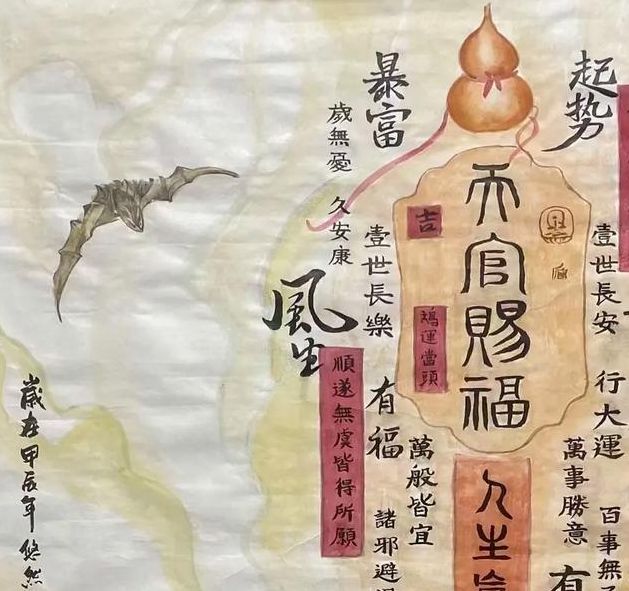 起势
壹世長安
行大運
百事無
萬事勝意
有
天官賜福
吉
鴻運當頭
人生
暴富
歲無憂
久安康
壹世長樂
有福
萬般皆宜
諸邪避
風生
順遂無虞皆得所願
歲在甲辰年
悠然